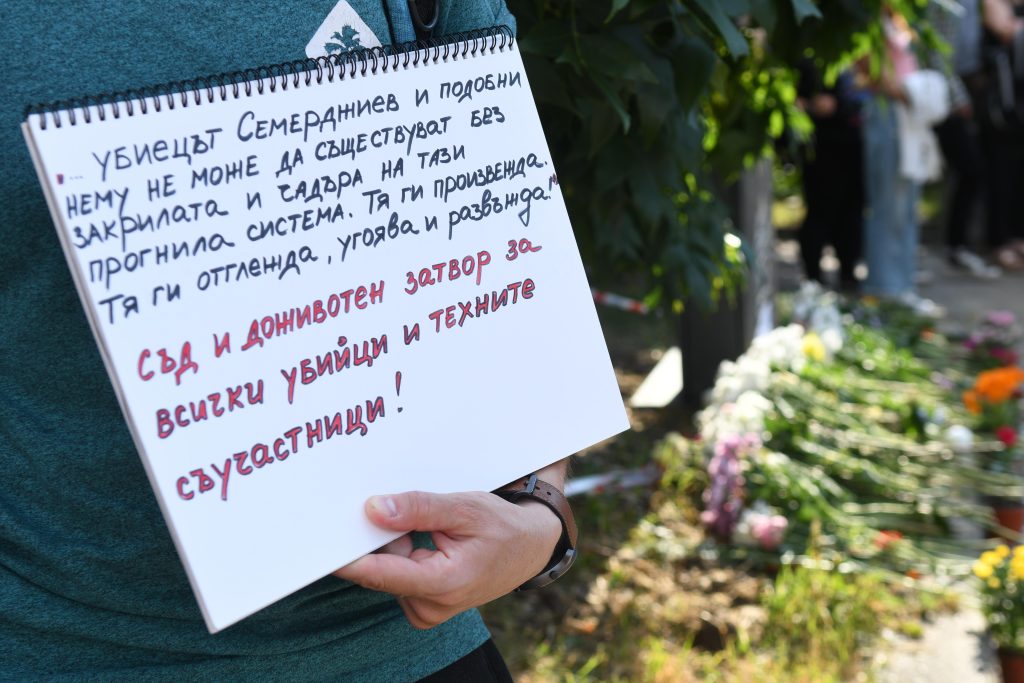 "... убиецът Семерджиев и подобни
нему не може да съществуват без
закрилата и чадъра на тази
прогнила система. Тя ги произвежда.
Тя ги отглежда, угоява и развъжда!"
Съд и доживотен затвор за
всички убийци и техните
съучастници!